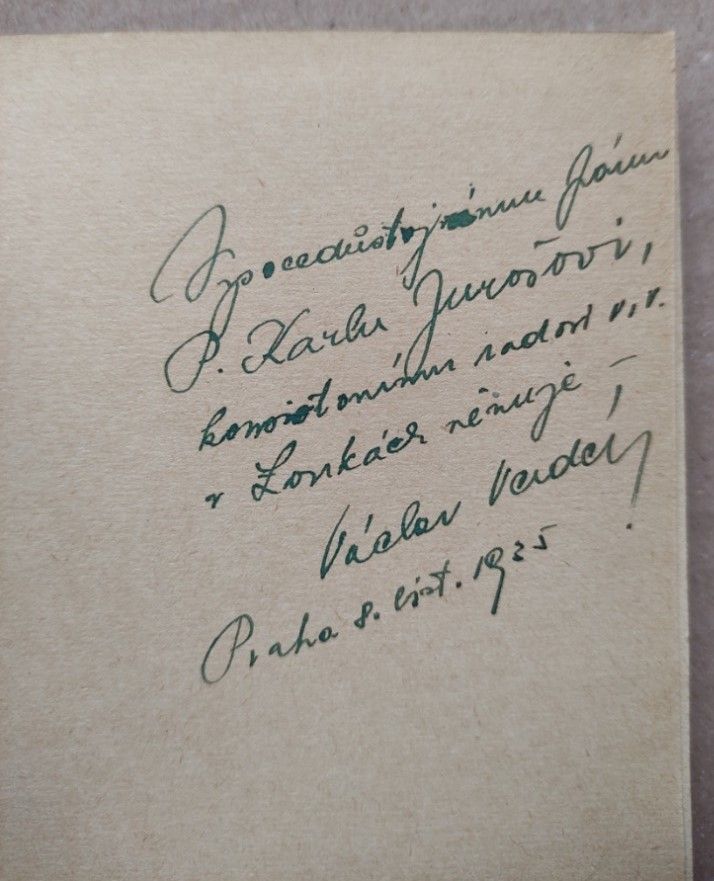 Vysocedůstojnému Pánu
P. Karlu Jurošovi,
konsistornímu radovi v. v.
v Loukách věnuje –
Václav
Praha 8. list. 1935